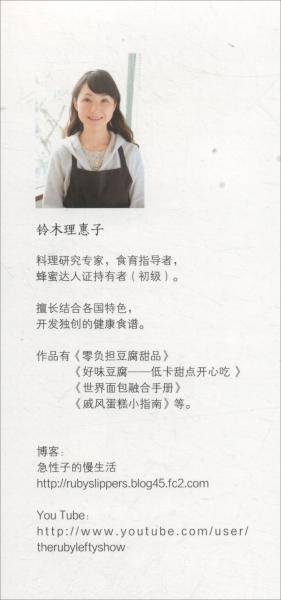 铃木理惠子
料理研究专家，食育指导者，
蜂蜜达人证持有者（初级）。
擅长结合各国特色，
开发独创的健康食谱。
作品有《零负担豆腐甜品》
《好味豆腐——低卡甜点开心吃 》
《世界面包融合手册》
《戚风蛋糕小指南》等。
博客：
急性子的慢生活
http://rubyslippers.blog45.fc2.com
You Tube:
http://www.youtube.com/user/
therubyleftyshow